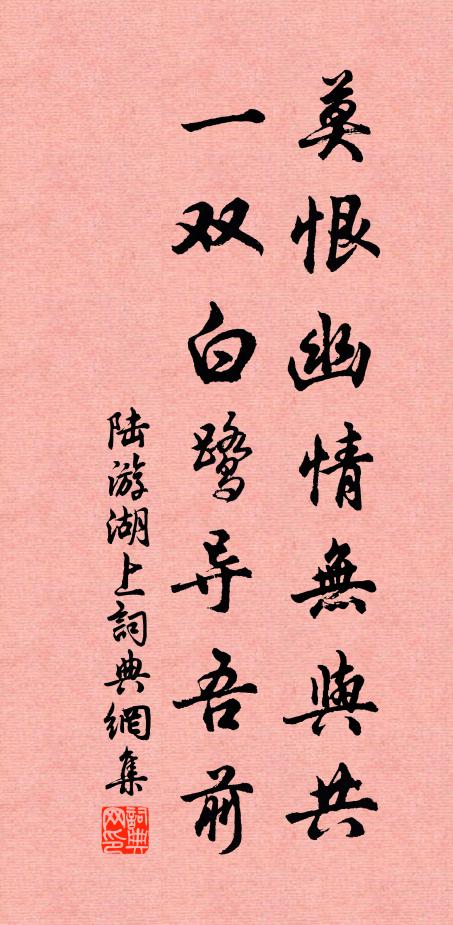 莫恨幽情無與共
一双白鹭导吾前
陆游湖上詞典網集
詞典网印